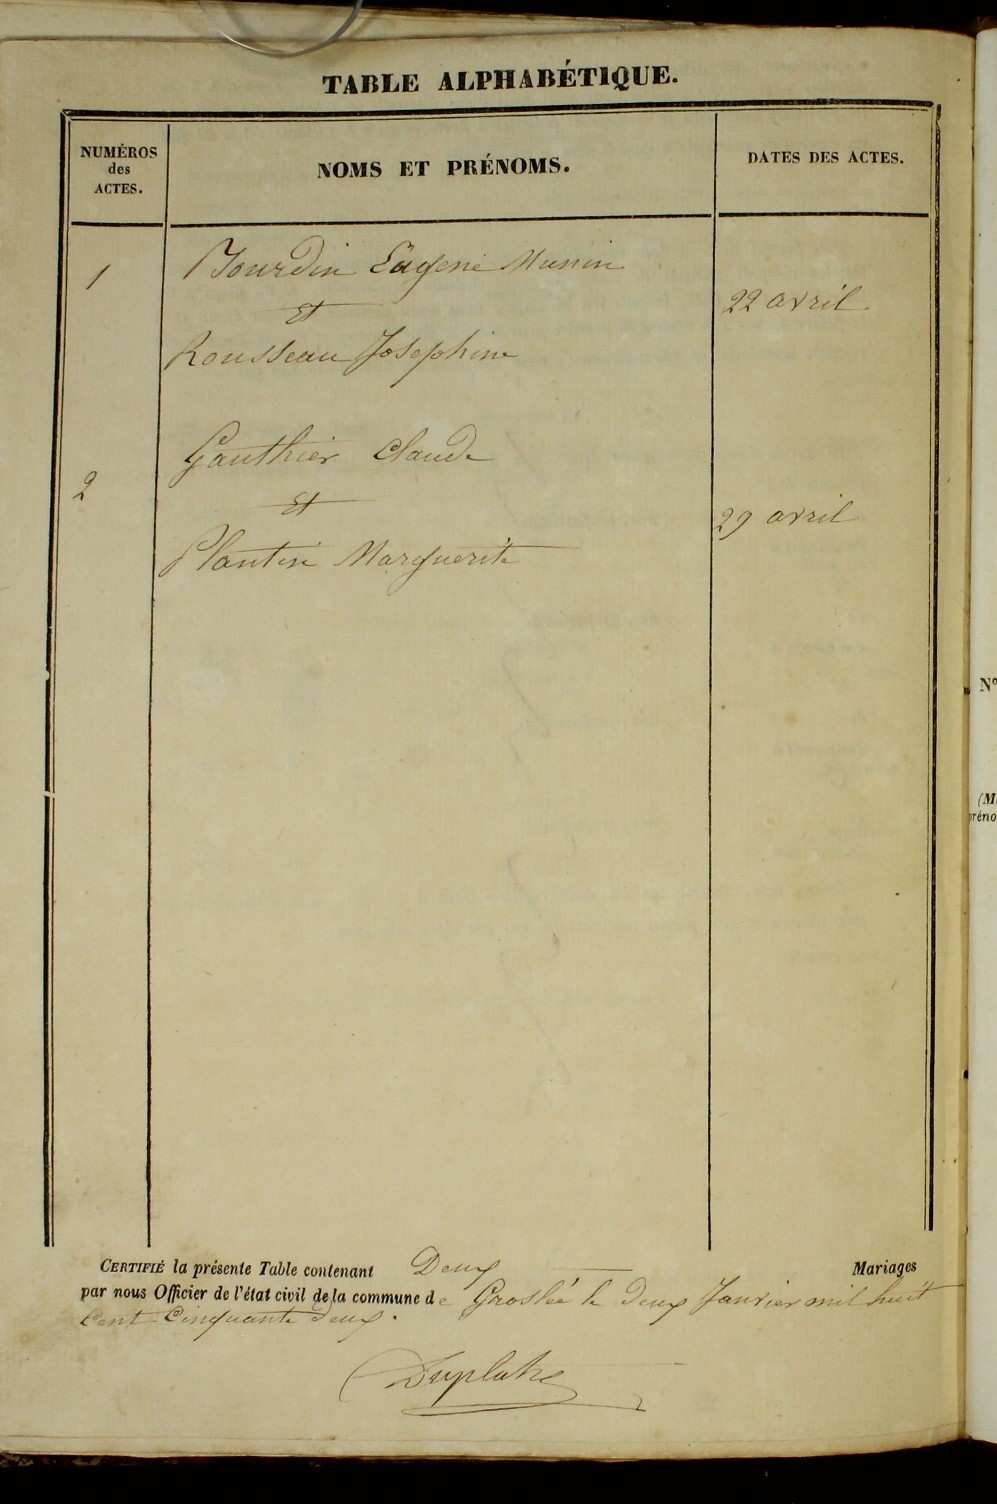 TABLE ALPHABÉTIQUE.
NUMÉROS
des
ACTES.
NOMS ET PRÉNOMS.
DATES DES ACTES.
1
Jourdin Eugene
Et
22 avril
Rousseau Josephine
2
Gauthier Claude
Et
29 avril
Plantin Marguerite
CERTIFIÉ la présente Table contenant Deux Mariages
par nous Officier de l'état civil de la commune de Groslée le deux Janvier mil huit
Cent Cinquante deux.
N°
(M
préno